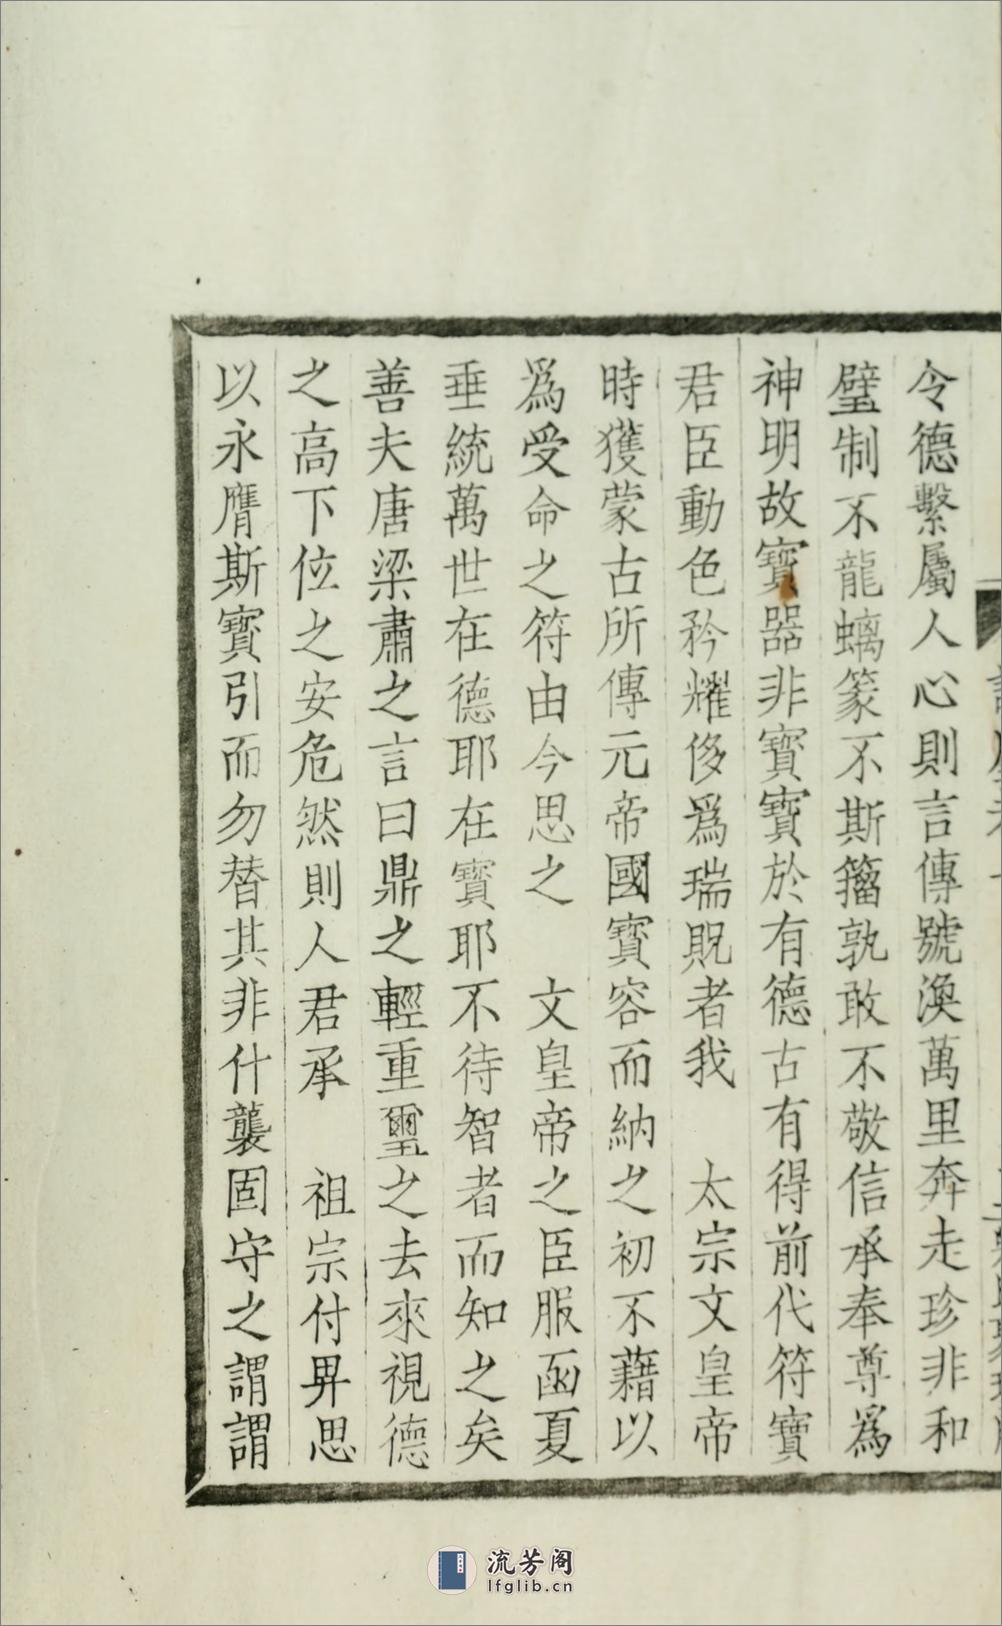 令德繫屬人心則言傳號渙萬里奔走珍非和
璧制不龍螭篆不斯籀孰敢不敬信承奉尊爲
神明故寶器非寶寶於有德古有得前代符寶
君臣動色矜耀侈爲瑞貺者我　太宗文皇帝
時獲蒙古所傳元帝國寶容而納之初不藉以
爲受命之符由今思之　文皇帝之臣服函夏
垂統萬世在德耶在寶耶不待智者而知之矣
善夫唐梁肅之言曰鼎之輕重璽之去來視德
之高下位之安危然則人君承　祖宗付畀思
以永膺斯寶引而勿替其非什襲固守之謂謂
流芳阁
lfglib.cn